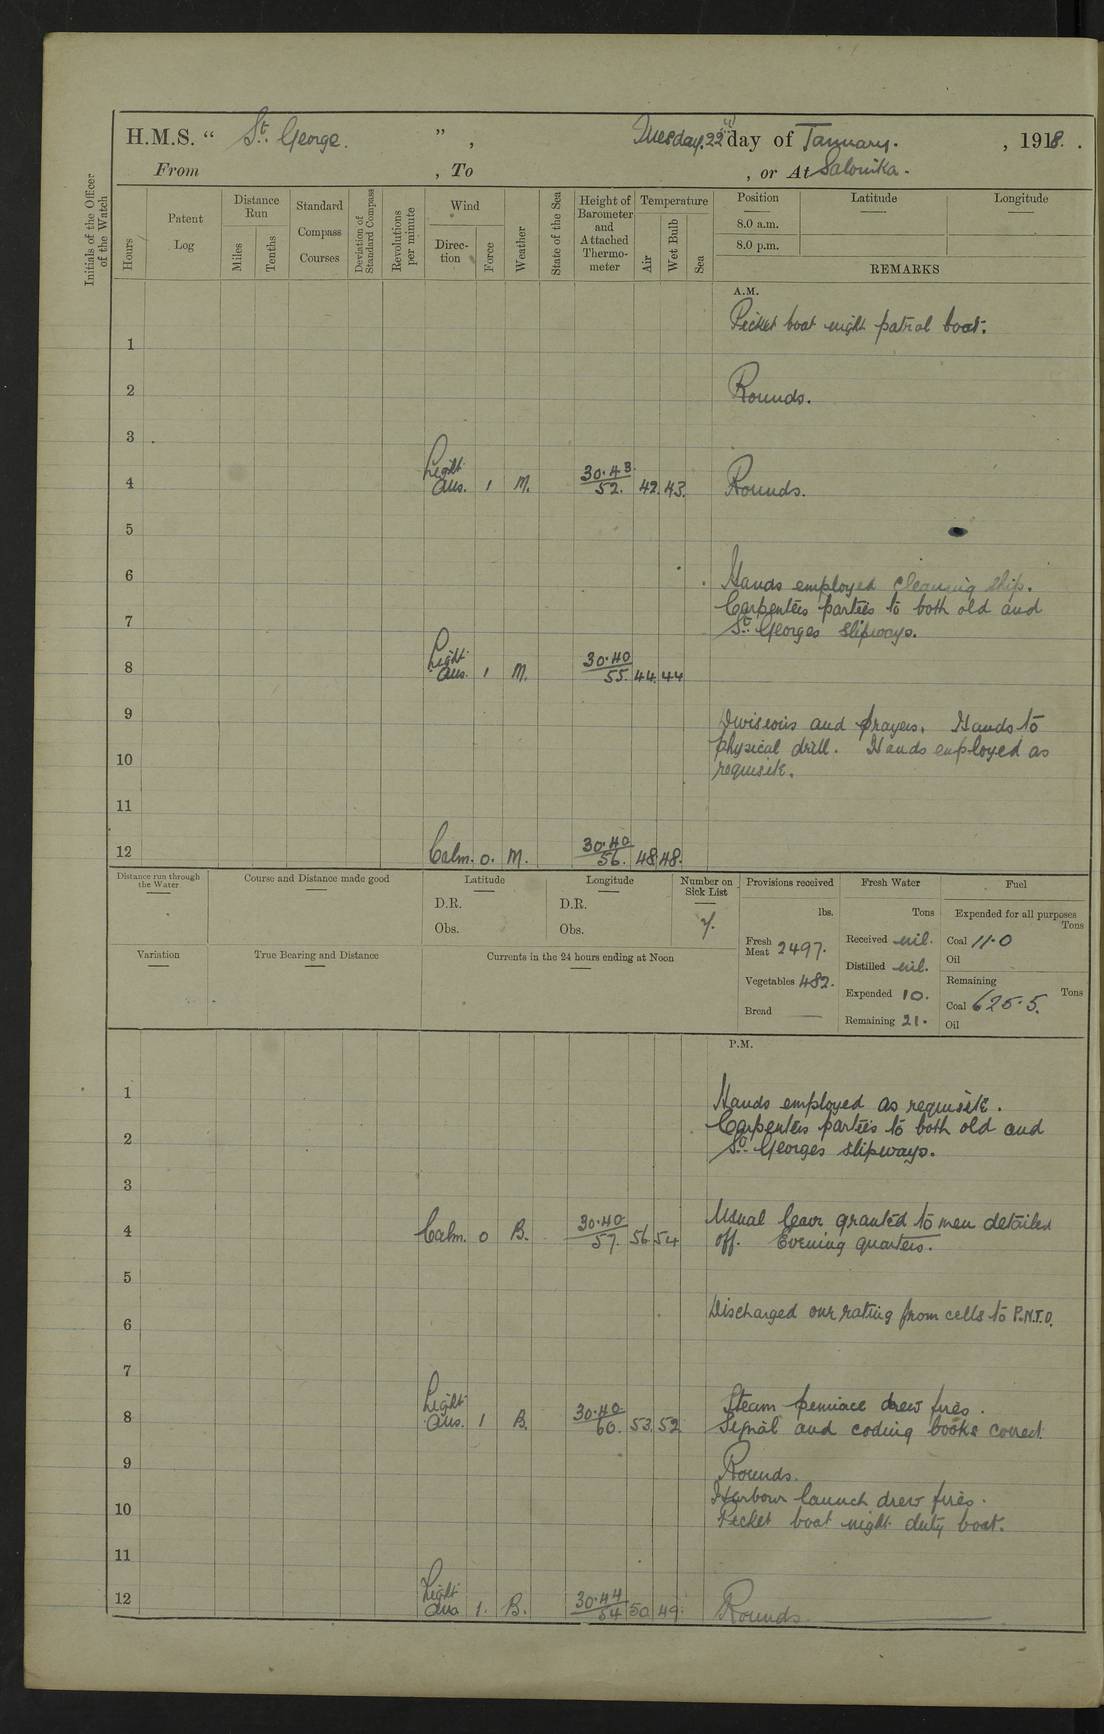 H.M.S. “ St. George. ” , Tuesday. 22nd day of January. , 1918. .
From , To , or At Salonika.
Initials of the Officer of the Watch
Hours
Patent Log
Distance Run
Miles
Tenths
Standard Compass Courses
Deviation of Standard Compass
Revolutions per minute
Wind
Direction
Force
Weather
State of the Sea
Height of Barometer and Attached Thermometer
Temperature
Air
Wet Bulb
Sea
Position
Latitude
Longitude
8.0 a.m.
8.0 p.m.
REMARKS
A.M.
Picket boat night patrol boat.
1
2 Rounds.
3
4 Light Airs. 1 M. 30.43 52. 42. 43. Rounds.
5
6 Hands employed cleaning ship.
Carpenters parties to both old and
7 St. Georges slipways.
8 Light Airs. 1 M. 30.40 55. 44. 44
9 Divisions and prayers. Hands to
physical drill. Hands employed as
10 requisite.
11
12 Calm. 0. M. 30.40 56. 48 48.
Distance run through the Water
Course and Distance made good
Latitude
D.R.
Obs.
Longitude
D.R.
Obs.
Number on Sick List
7.
Provisions received
lbs.
Fresh Meat 2497.
Vegetables 482.
Bread —
Fresh Water
Tons
Received nil.
Distilled nil.
Expended 10.
Remaining 21.
Fuel
Expended for all purposes
Tons
Coal 11.0
Oil
Remaining
Tons
Coal 625.5.
Oil
Variation
True Bearing and Distance
Currents in the 24 hours ending at Noon
P.M.
1 Hands employed as requisite.
Carpenters parties to both old and
2 St. Georges slipways.
3
4 Calm. 0 B. 30.40 57. 56 54 Usual leave granted to men detailed
off. Evening quarters.
5
6 Discharged one rating from cells to P.N.T.O.
7
8 Light Airs. 1 B. 30.40 60. 53. 52 Steam pinnace drew fires.
Signal and coding books correct.
9 Rounds.
Harbour launch drew fires.
10 Picket boat night duty boat.
11
12 Light Airs 1. B. 30.44 54 50 49. Rounds.